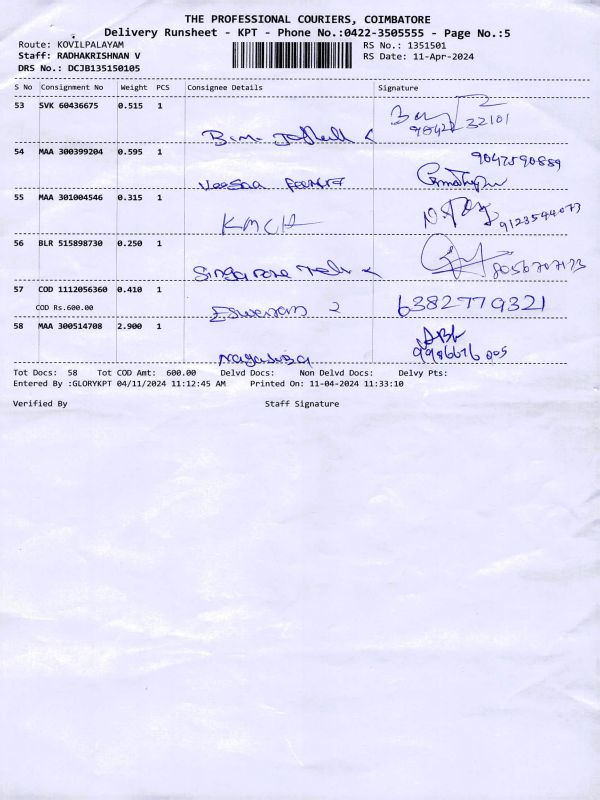 THE PROFESSIONAL COURIERS, COIMBATORE
Delivery Runsheet - KPT - Phone No.:0422-3505555 - Page No.:5
Route: KOVILPALAYAM
RS No.: 1351501
Staff: RADHAKRISHNAN V
RS Date: 11-Apr-2024
DRS No.: DCJB135150105
S No Consignment No Weight PCS Consignee Details Signature
53 SVK 60436675 0.515 1
54 MAA 300399204 0.595 1
9047590889
55 MAA 301004546 0.315 1
KMCH
9123544073
56 BLR 515898730 0.250 1
8056707173
57 COD 1112056360 0.410 1
COD Rs.600.00
Eswaran 2
6382779321
58 MAA 300514708 2.900 1
Tot Docs: 58 Tot COD Amt: 600.00 Delvd Docs: Non Delvd Docs: Delvy Pts:
Entered By :GLORYKPT 04/11/2024 11:12:45 AM Printed On: 11-04-2024 11:33:10
Verified By Staff Signature